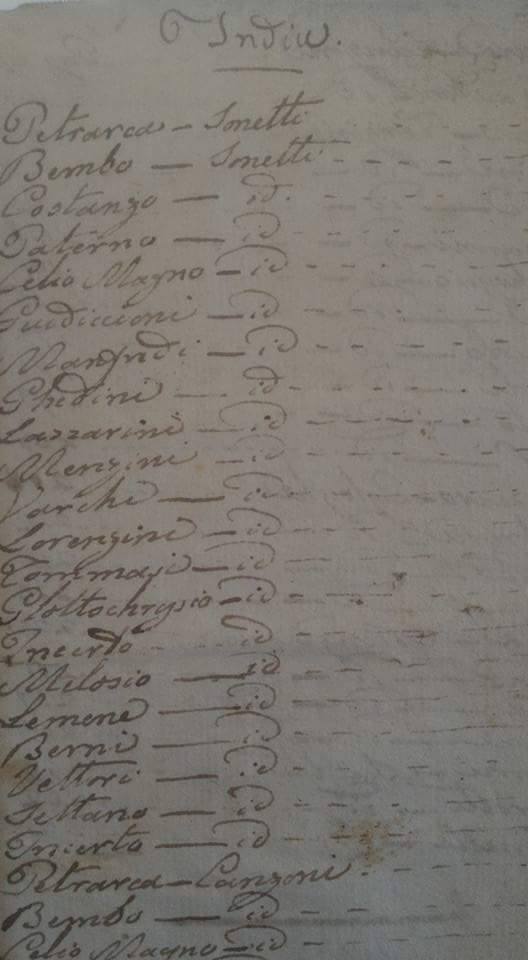 Indice.
Petrarca - Sonetti
Bembo - Sonetti - - - - - -
Costanzo - id. - - - - -
Paterno - id - - - - - -
Celio Magno - id - - - - -
Guidiccioni - id - - - - -
Manfredi - id - - - - -
Ghedini - id - - - - -
Lazzarini - id - - - - -
Menzini - id - - - - -
Varchi - id - - - - -
Lorenzini - id - - -
Tommasi - id - - -
Glottochrysio - id - - -
Incerto - id - - - -
Milosio - id - - - -
Lemene - id - - - -
Berni - id - - - -
Vettori - id - - - -
Settano - id - - - -
Incerto - id - - - -
Petrarca - Canzoni - - - -
Bembo - id - - - -
Celio Magno - id -